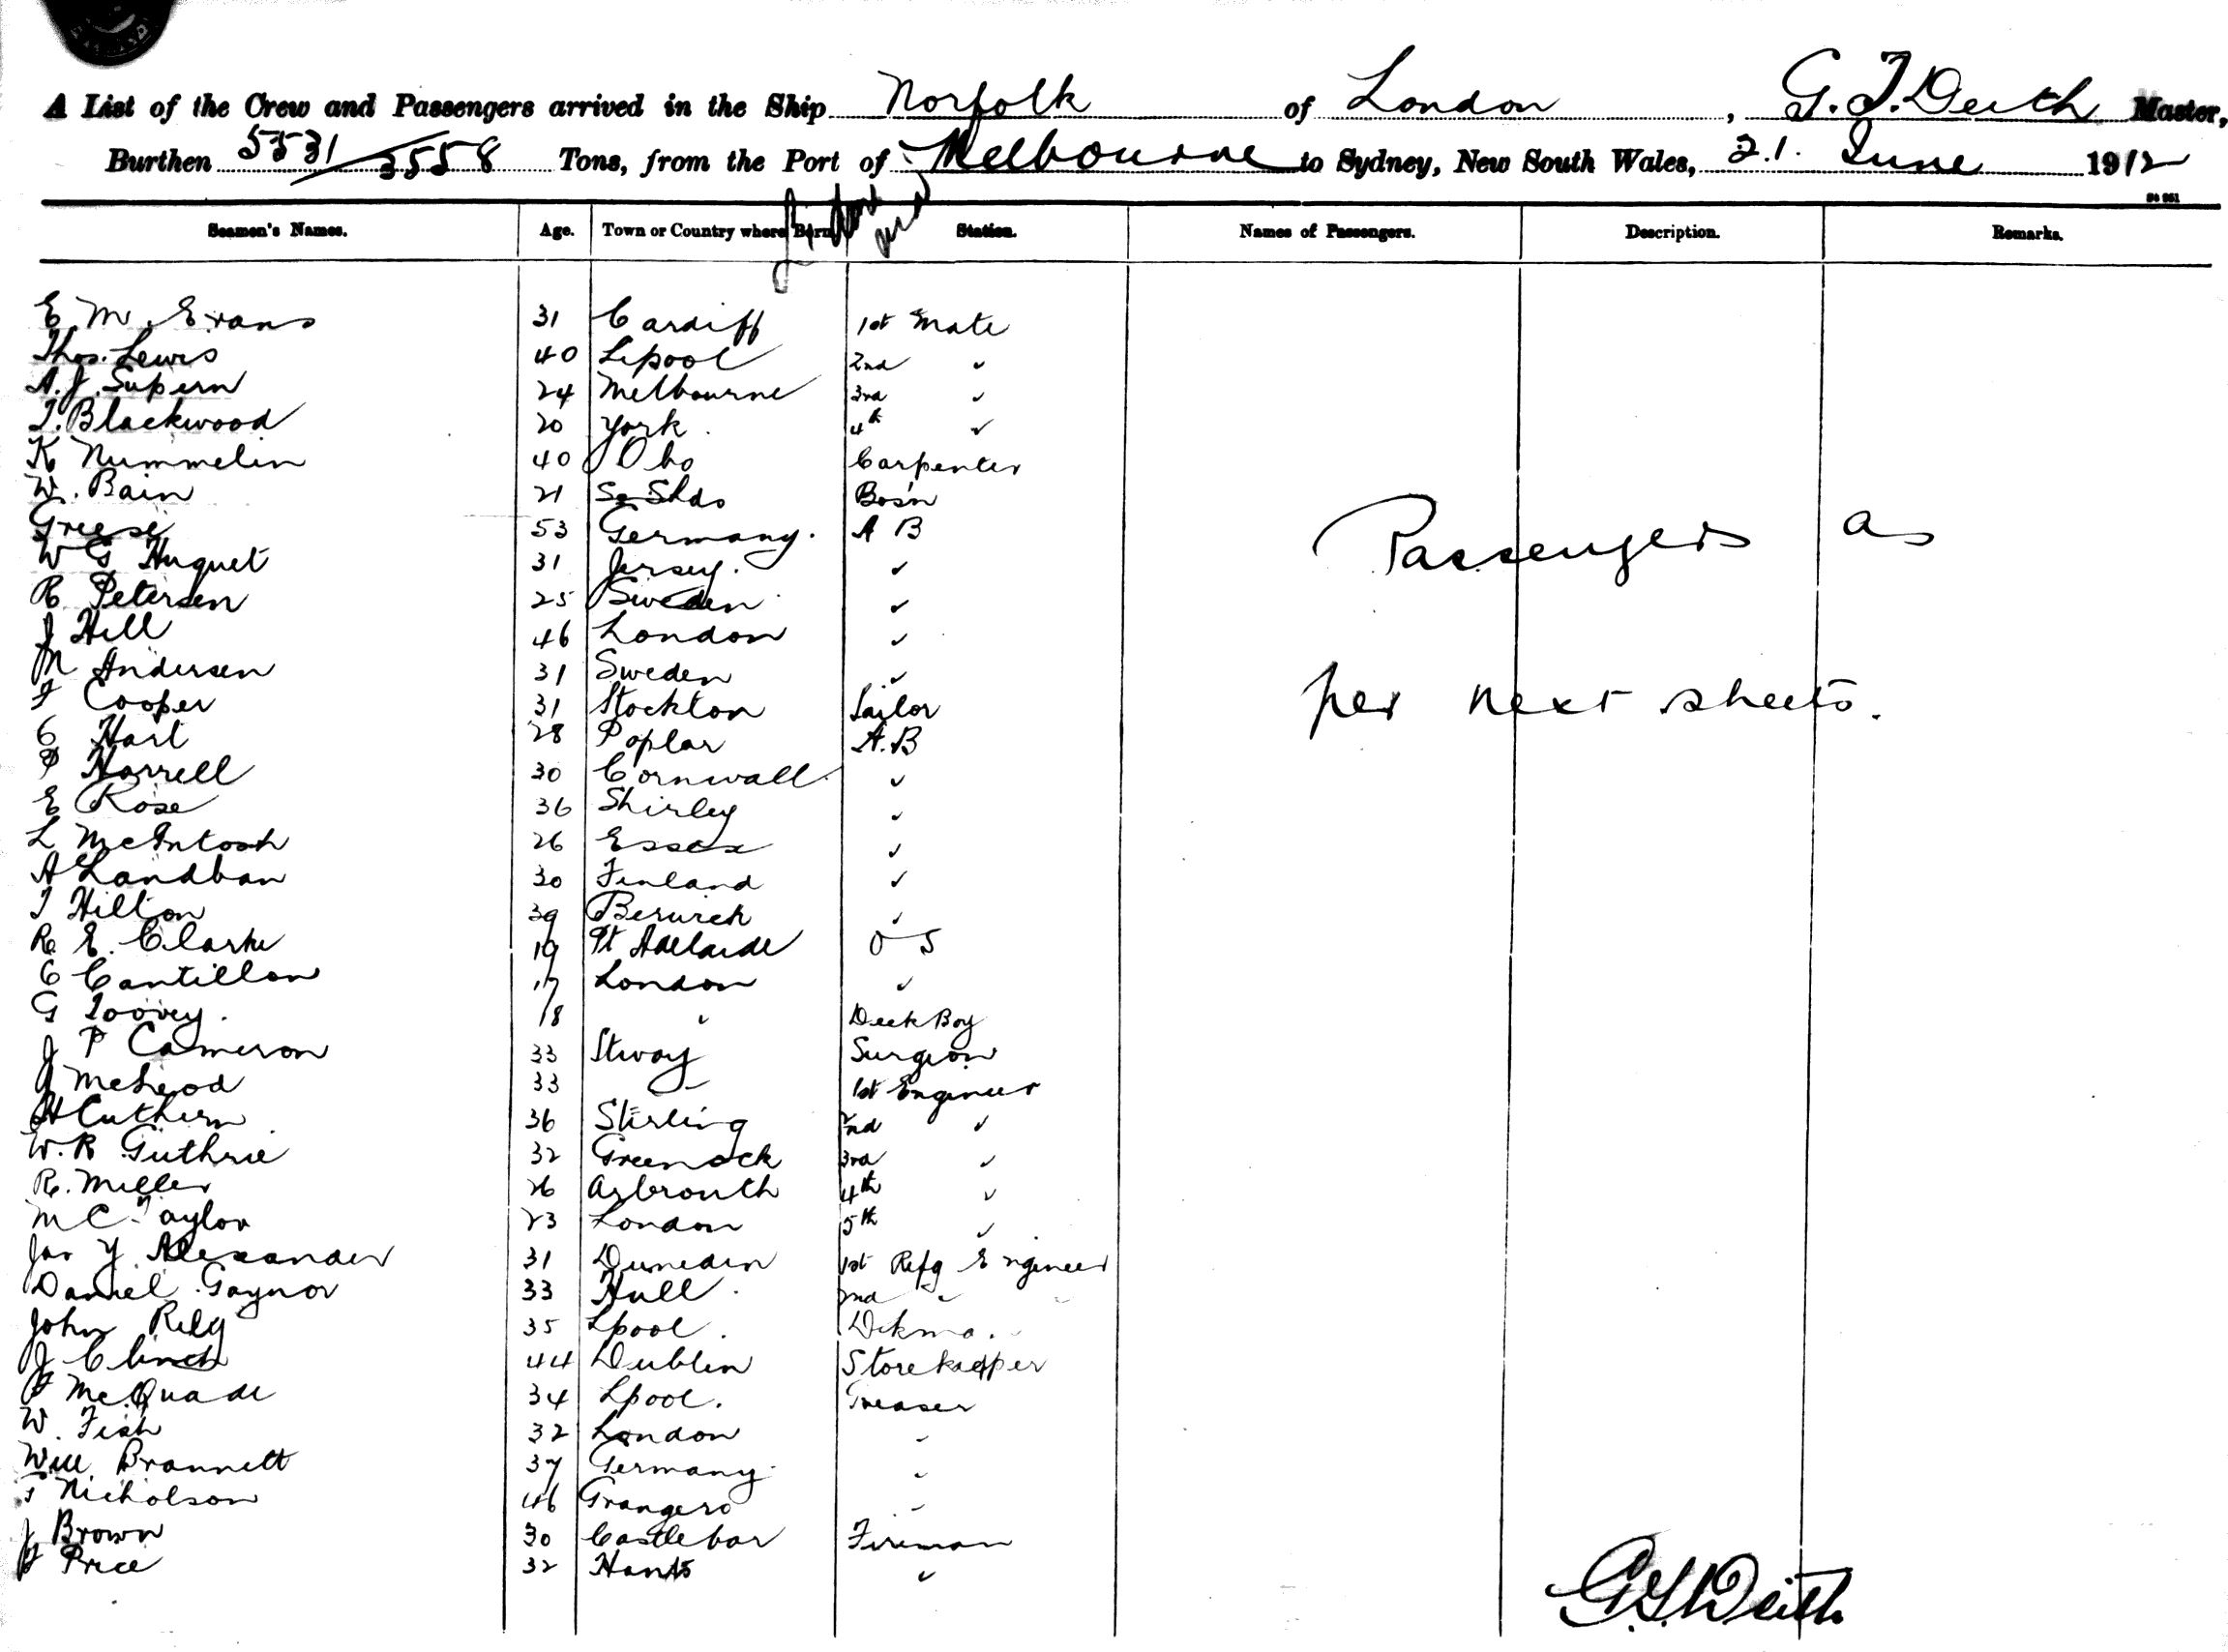 A List of the Crew and Passengers arrived in the Ship Norfolk of London, G. T. Deith Master,
Burthen 5531/3558 Tons, from the Port of Melbourne to Sydney, New South Wales, 21. June 1912
Seamen's Names. Age. Town or Country where Born Station. Names of Passengers. Description. Remarks.
E. M. Evans 31 Cardiff 1st Mate
Thos. Lewis 40 Lpool 2nd "
A. J. Supern 24 Melbourne 3rd "
T. Blackwood 20 York 4th "
K Nummelin 40 Obo Carpenter
W. Bain 21 So Shds Bos'n
Greese 53 Germany. A B
W G Huquet 31 Jersey. "
R Petersen 25 Sweden "
J Hill 46 London "
M Andersen 31 Sweden "
F Cooper 31 Stockton Sailor
C Hart 28 Poplar A.B
P Harrell 30 Cornwall "
E Rose 36 Shirley "
L McIntosh 26 Essex "
A Landban 30 Finland "
T Hilton 39 Berwick "
R. E. Clarke 19 Pt Adelaide O S
C Cantillon 17 London "
G Toovey. 18 " Deck Boy
J P Cameron 33 Stway Surgeon
J McLeod 33 " 1st Engineer
36 Stirling 2nd "
W. R Guthrie 32 Greenock 3rd "
R. Miller 26 Arbrouth 4th "
M C Taylor 23 London 5th "
Jas Y Alexander 31 Dunedin 1st Refg Engineer
Daniel Gaynor 33 Hull 2nd " "
John Rily 35 Lpool. Dkmn.
J Clinch 44 Dublin Storekeeper
P McQuade 34 Lpool. Greaser
W. Fish 32 London "
Will Brannett 37 Germany "
T Nicholson 46 "
J Brown 30 Castlebar Fireman
F Price 32 Hants "
Passengers as
per next sheets.
G. T. Deith